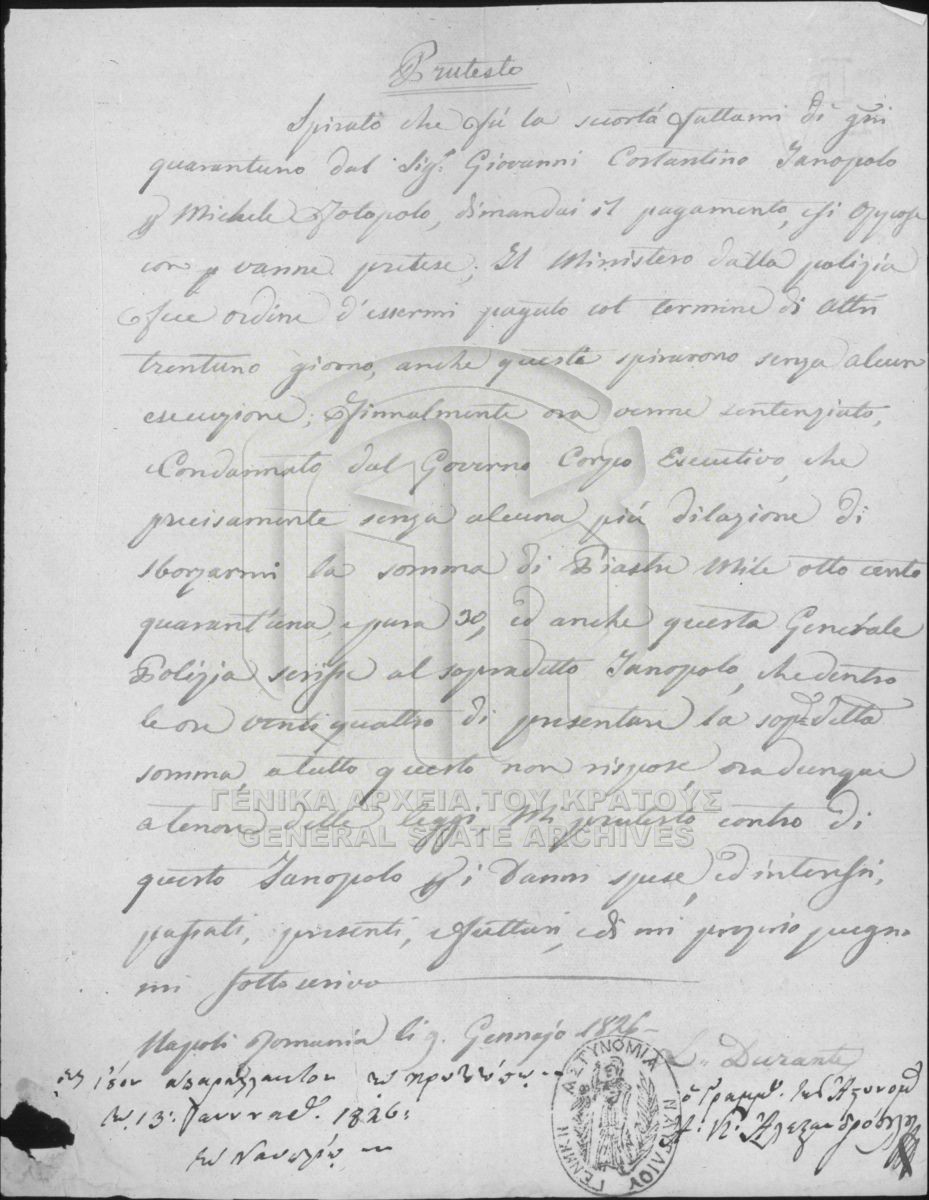 Prutesto
Spirato che fù la scorta fattami di gni
quarantuno dal Sigr. Giovanni Costantino Janopolo
p Michele Fotopolo, dimandai il pagamento, esi oppose
con p vanne pretese; Il Ministero dalla polizia
fece ordine d'essermi pagato col termine di altri
trentuno giorno, anche queste spirarono senza alcun
esecuzione; Finnalmente ora venne sentenziato,
Condannato dal Governo Corpo Esecutivo, che
precisamente senza alcuna più dilazione di
sborzarmi la somma di Piastre Mile otto cento
quarant'una, e para 30, ed anche questa Generale
Polizia scrisse al sopradetto Janopolo, che dentro
le ore venti quattro di presentare la sopa. detta
somma, a tutto questo non rispose, ora dunque
a tenore delle leggi, Mi prutesto contro di
questo Janopolo p i Danni spese, ed interessi,
passati, presenti, e futturi, e di mi proprio pugno
mi sottoscrivo
Napoli Romania li 9. Gennajo 1826
L. Durante
ίσον απαράλλακτον του πρωτέστου
τη 13: Ιαννουαρ. 1826:
εν Ναυπλίω
ο Γραμμ. της Αστυνομ
Κ. Αλεξανδρόπουλος
ΓΕΝΙΚΗ ΑΣΤΥΝΟΜΙΑ ΝΑΥΠΛΙΟΥ
ΓΕΝΙΚΑ ΑΡΧΕΙΑ ΤΟΥ ΚΡΑΤΟΥΣ
GENERAL STATE ARCHIVES